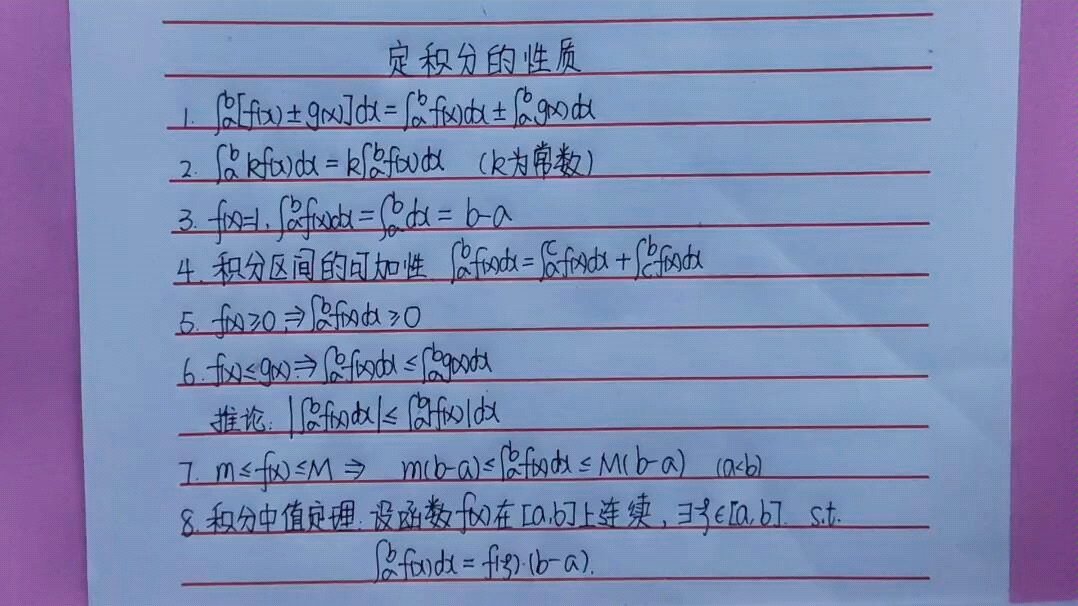 定积分的性质
1. ∫ₐᵇ[f(x)±g(x)]dx=∫ₐᵇf(x)dx±∫ₐᵇg(x)dx
2. ∫ₐᵇkf(x)dx=k∫ₐᵇf(x)dx (k为常数)
3. f(x)=1, ∫ₐᵇf(x)dx=∫ₐᵇdx=b-a
4. 积分区间的可加性 ∫ₐᵇf(x)dx=∫ₐᶜf(x)dx+∫꜀ᵇf(x)dx
5. f(x)≥0,⇒∫ₐᵇf(x)dx≥0
6. f(x)≤g(x)⇒∫ₐᵇf(x)dx≤∫ₐᵇg(x)dx
推论: |∫ₐᵇf(x)dx|≤∫ₐᵇ|f(x)|dx
7. m≤f(x)≤M ⇒ m(b-a)≤∫ₐᵇf(x)dx≤M(b-a) (a<b)
8. 积分中值定理: 设函数f(x)在[a,b]上连续,∃ξ∈[a,b]. s.t.
∫ₐᵇf(x)dx=f(ξ)·(b-a).